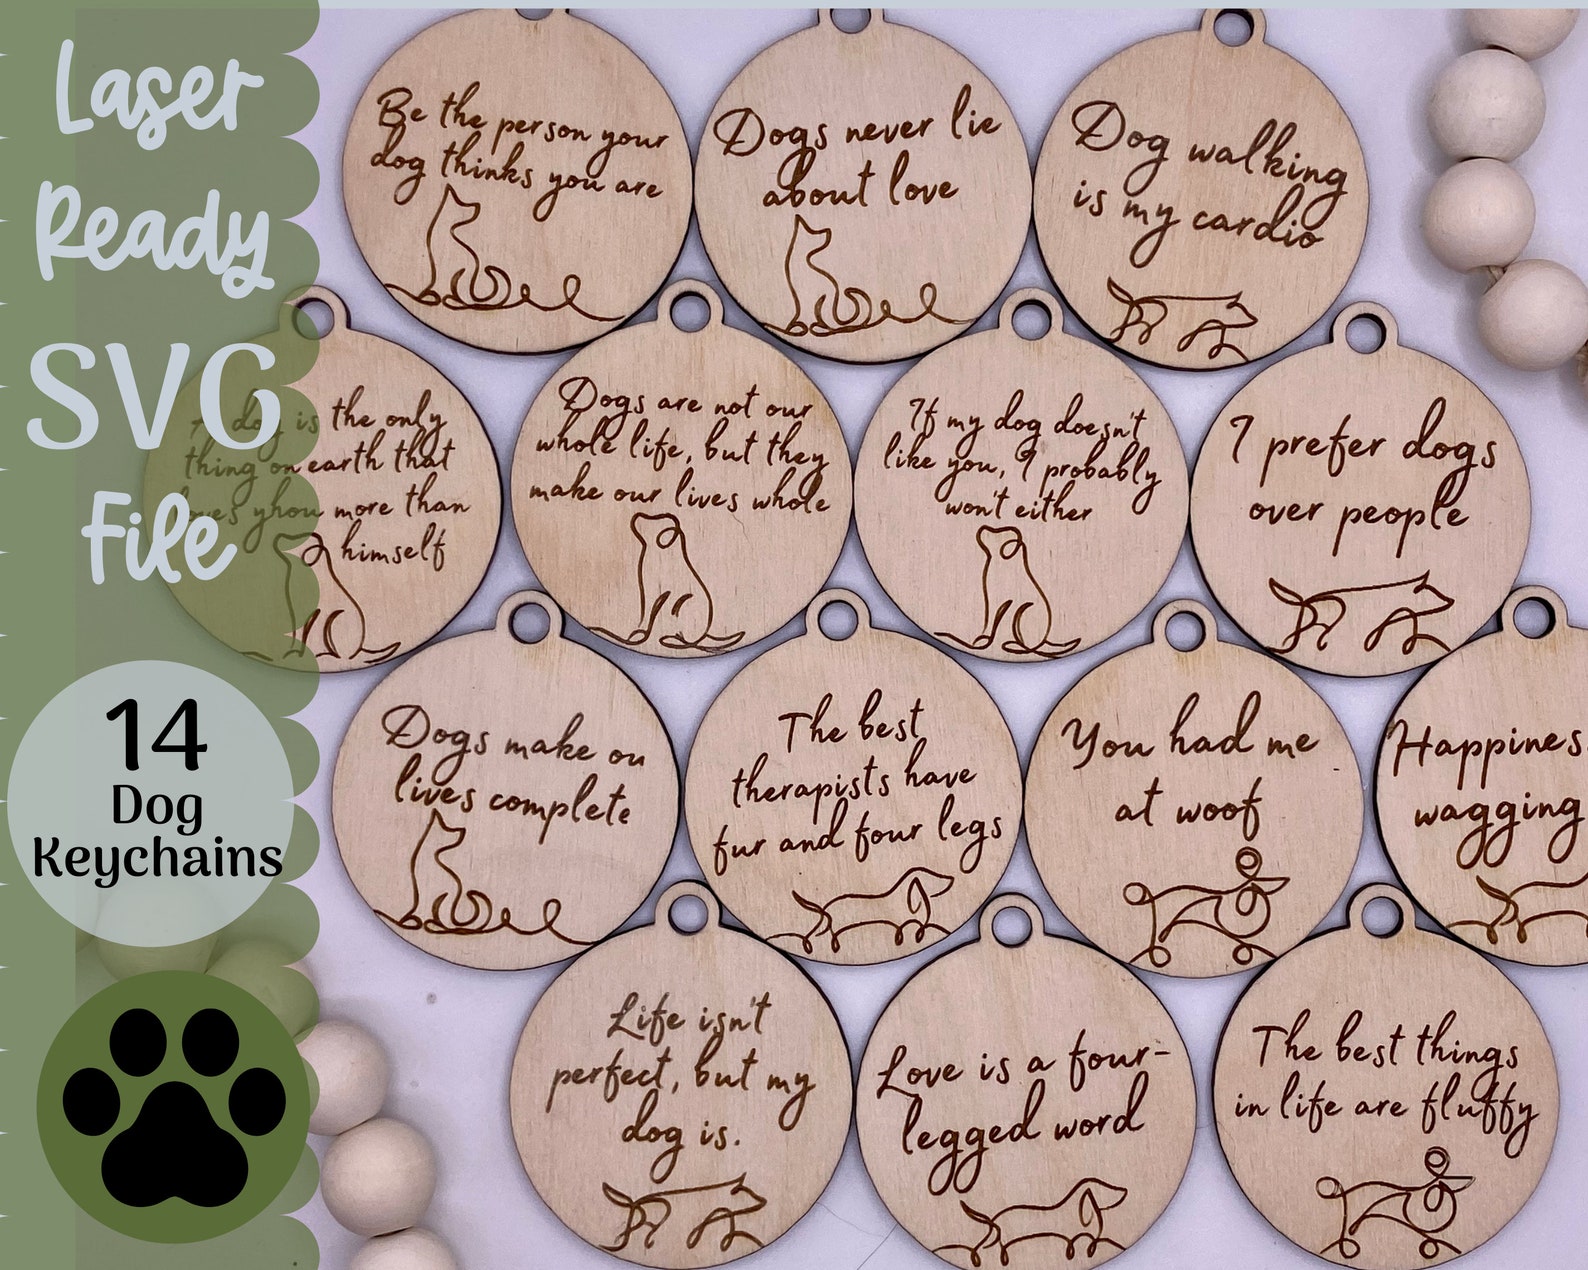 Laser
Ready
SVG
File
14
Dog
Keychains
Be the person your
dog thinks you are
Dogs never lie
about love
Dog walking
is my cardio
A dog is the only
thing on earth that
loves yhou more than
himself
Dogs are not our
whole life, but they
make our lives whole
If my dog doesn't
like you, I probably
won't either
I prefer dogs
over people
Dogs make ou
lives complete
The best
therapists have
fur and four legs
You had me
at woof
Happines
wagging
Life isn't
perfect, but my
dog is.
Love is a four-
legged word
The best things
in life are fluffy